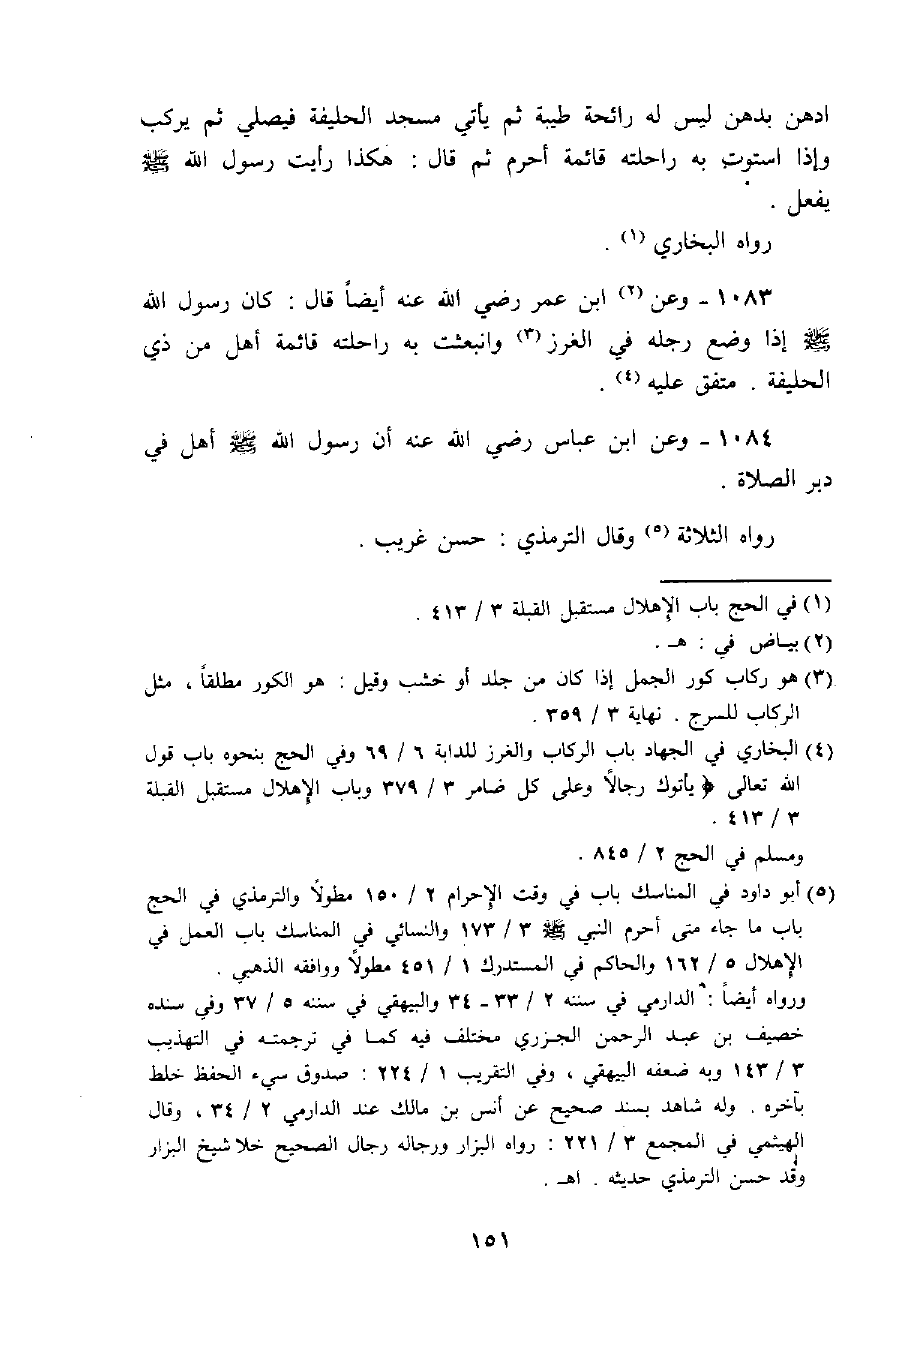 ادهن بدهن ليس له رائحة طيبة ثم يأتي مسجد الحليفة فيصلي ثم يركب
وإذا استوت به راحلته قائمة أحرم ثم قال : هكذا رأيت رسول الله ﷺ
يفعل .
رواه البخاري (١) .
١٠٨٣ ـ وعن (٢) ابن عمر رضي الله عنه أيضاً قال : كان رسول الله
ﷺ إذا وضع رجله في الغرز (٣) وانبعثت به راحلته قائمة أهل من ذي
الحليفة . متفق عليه (٤) .
١٠٨٤ ـ وعن ابن عباس رضي الله عنه أن رسول الله ﷺ أهل في
دبر الصلاة .
رواه الثلاثة (٥) وقال الترمذي : حسن غريب .
(١) في الحج باب الإهلال مستقبل القبلة ٣ / ٤١٣ .
(٢) بياض في : هـ .
(٣) هو ركاب كور الجمل إذا كان من جلد أو خشب وقيل : هو الكور مطلقاً ، مثل
الركاب للسرج . نهاية ٣ / ٣٥٩ .
(٤) البخاري في الجهاد باب الركاب والغرز للدابة ٦ / ٦٩ وفي الحج بنحوه باب قول
الله تعالى ﴿ يأتوك رجالاً وعلى كل ضامر ٣ / ٣٧٩ وباب الإهلال مستقبل القبلة
٣ / ٤١٣ .
ومسلم في الحج ٢ / ٨٤٥ .
(٥) أبو داود في المناسك باب في وقت الإحرام ٢ / ١٥٠ مطولاً والترمذي في الحج
باب ما جاء متى أحرم النبي ﷺ ٣ / ١٧٣ والنسائي في المناسك باب العمل في
الإهلال ٥ / ١٦٢ والحاكم في المستدرك ١ / ٤٥١ مطولاً ووافقه الذهبي .
ورواه أيضاً : الدارمي في سننه ٢ / ٣٣ ـ ٣٤ والبيهقي في سننه ٥ / ٣٧ وفي سنده
خصيف بن عبد الرحمن الجزري مختلف فيه كما في ترجمته في التهذيب
٣ / ١٤٣ وبه ضعفه البيهقي ، وفي التقريب ١ / ٢٢٤ : صدوق سيء الحفظ خلط
بآخره . وله شاهد بسند صحيح عن أنس بن مالك عند الدارمي ٢ / ٣٤ ، وقال
الهيثمي في المجمع ٣ / ٢٢١ : رواه البزار ورجاله رجال الصحيح خلا شيخ البزار
وقد حسن الترمذي حديثه . اهـ .
١٥١